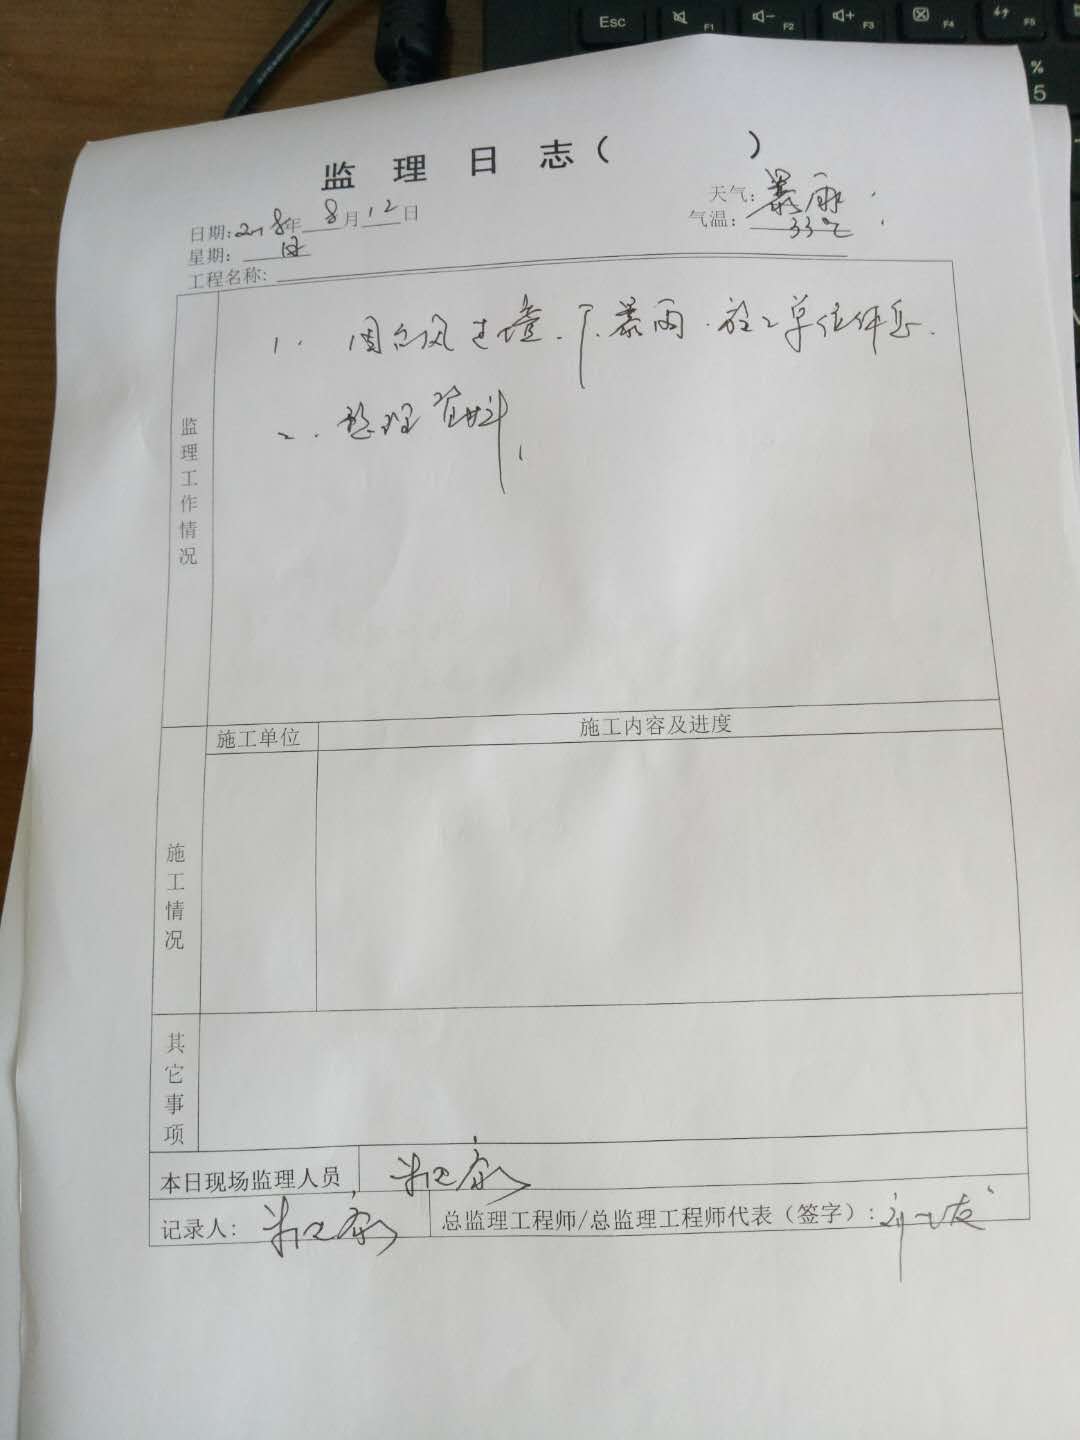 Esc F1 F2 F3 F4 F5
% 5
监理日志( )
日期:2018年8月12日
天气:暴雨
星期:日
气温:33℃
工程名称:
监理工作情况
1. 因台风过境.下暴雨.施工单位休息.
2. 整理资料
施工单位 施工内容及进度
施工情况
其它事项
本日现场监理人员
记录人: 总监理工程师/总监理工程师代表(签字):